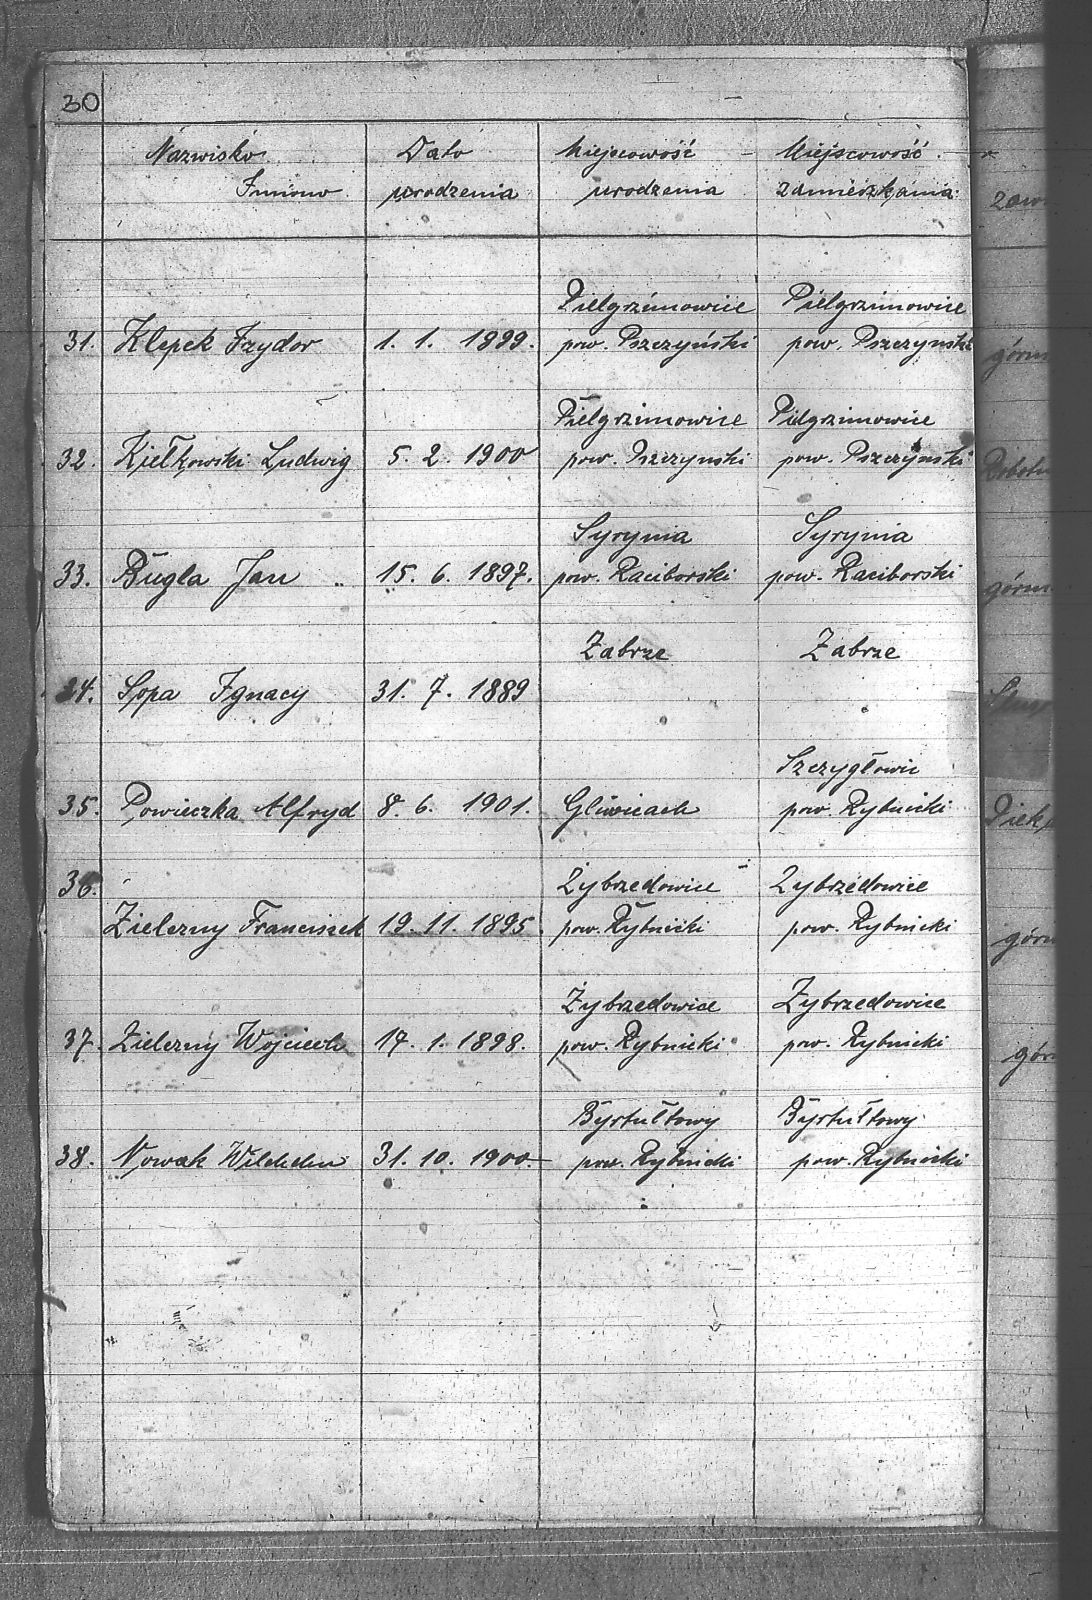 30
Nazwisko Data Miejscowość Miejscowość
Imiono urodzenia urodzenia zamieszkania
Pielgrzimowice Pielgrzimowice
31. Klepek Izydor 1. 1. 1899. pow. Pszczyński pow. Pszczynski górn
Pielgrzimowice Pielgrzimowice
32. Kiełkowski Ludwig 5. 2. 1900 pow. Pszczynski pow. Pszczynski Robotn
Syrynia Syrynia
33. Bugla Jan 15. 6. 1897. pow. Raciborski pow. Raciborski górn
Zabrze Zabrze
34. Sopa Ignacy 31. 7. 1889
Szczygłowic
35. Powieczka Alfryd 8. 6. 1901. Gliwicach pow. Rybnicki Piek
36. Zybrzedowice Zybrzedowice
Zielezny Franciszek 19. 11. 1895. pow. Rybnicki pow. Rybnicki górn
Żybrzedowice Zybrzedowice
37. Zielezny Wojciech 17. 1. 1898. pow. Rybnicki pow. Rybnicki gór
Byrtułtowy Byrtułtowy
38. Nowak Wilchelm 31. 10. 1900. pow. Rybnicki pow. Rybnicki